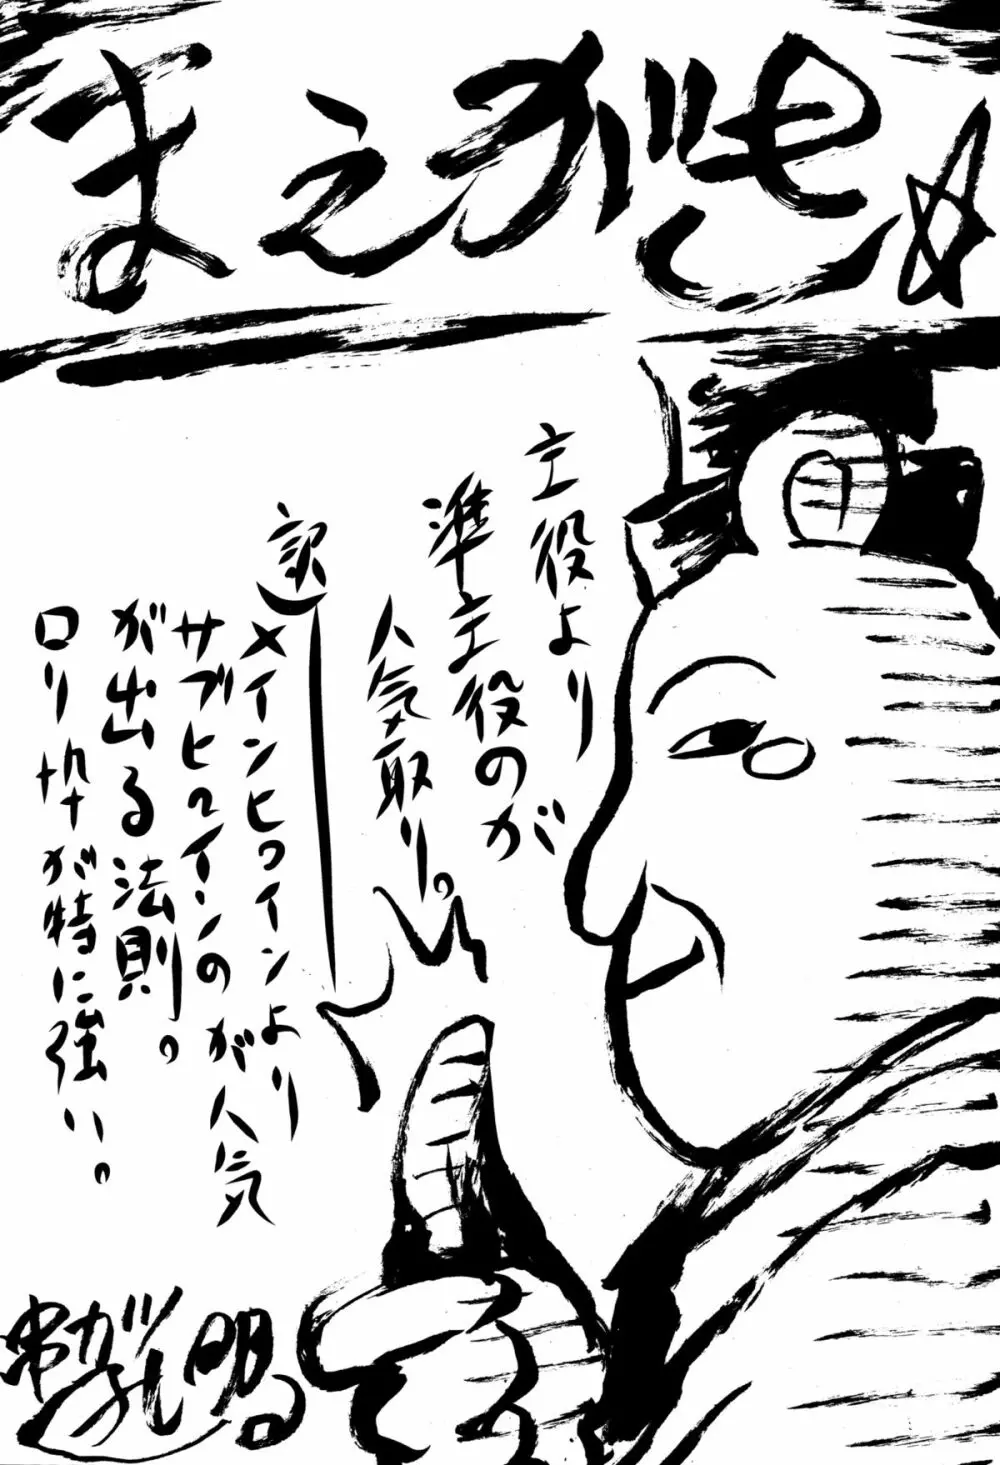 まえがき☆
主役より
準主役のが
人気取り。
訳)
メインヒロインより
サブヒロインのが人気
が出る法則。
ロリ枠が特に強い。
串カツ孔明